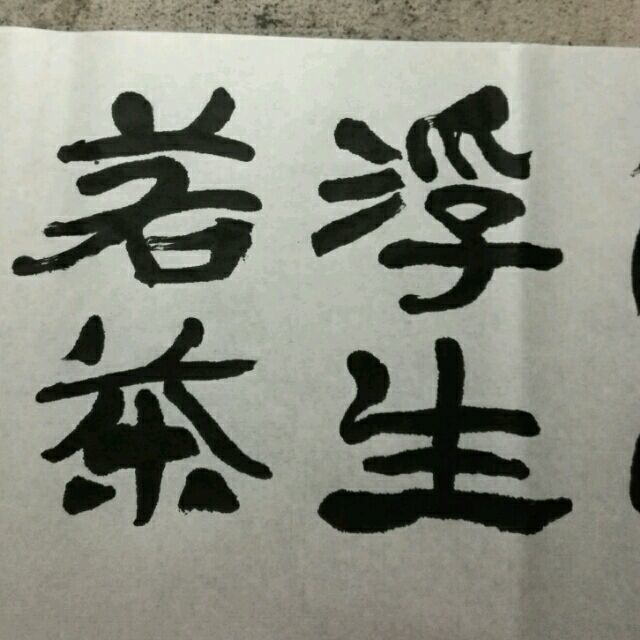 浮生
若茶